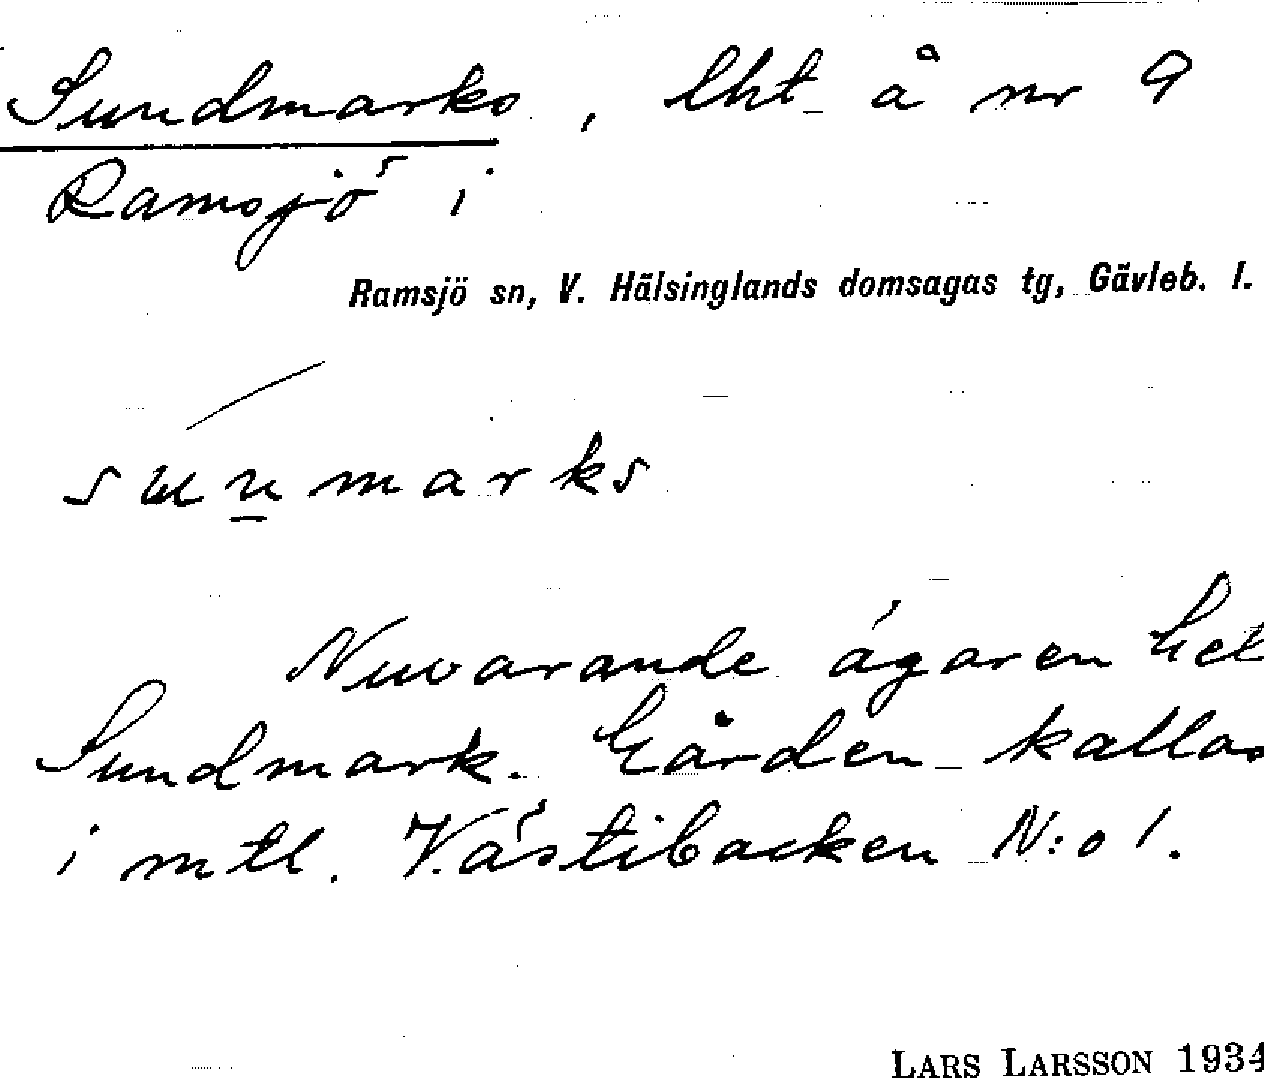 Sundmarks, lht å nr 9
Ramsjö i
Ramsjö sn, V. Hälsinglands domsagas tg, Gävleb. l.
sunmarks
Nuvarande ägaren het
Sundmark. Gården kallas
i mtl. Västibacken N:o 1.
LARS LARSSON 1934